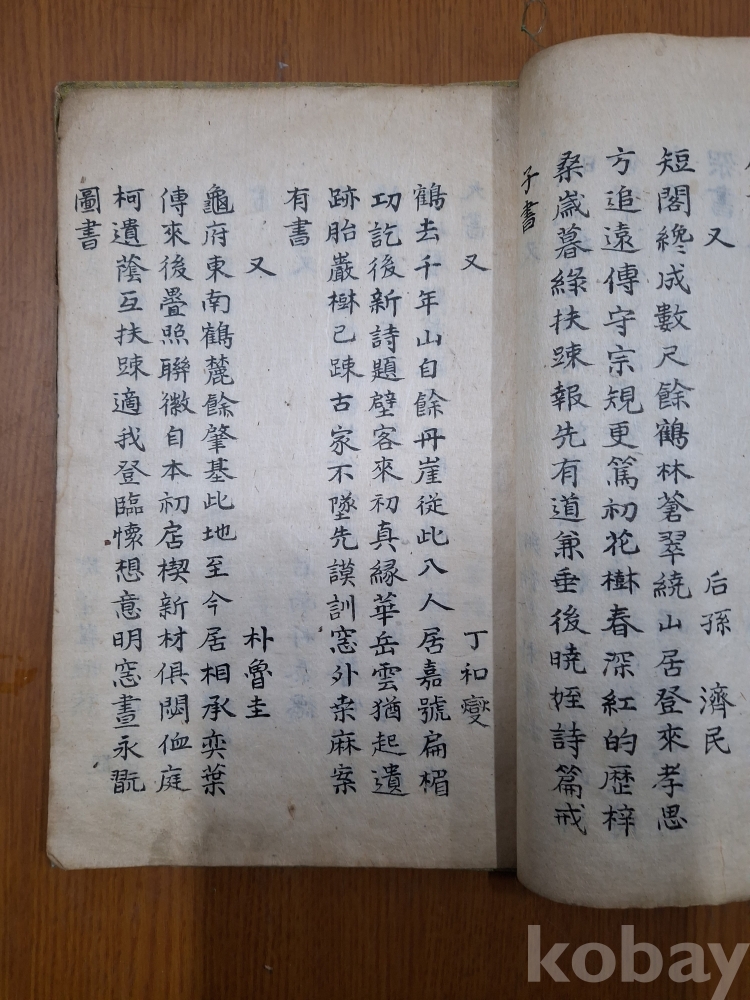 又 后孫 濟民
短閣纔成數尺餘鶴林蒼翠繞山居登來孝思
方追遠傳守宗規更篤初花樹春深紅的歷梓
桑歲暮綠扶踈報先有道兼垂後曉姪詩篇戒
子書
又 丁和燮
鶴去千年山自餘丹崖從此八人居嘉號扁楣
功訖後新詩題壁客來初真緣華岳雲猶起遺
跡胎巖樹已踈古家不墜先謨訓窓外桒麻案
有書
又 朴魯圭
龜府東南鶴麓餘肇基此地至今居相承奕葉
傳來後疊照聯徽自本初扂楔新材俱閟侐庭
柯遺蔭互扶踈適我登臨懷想意明窓晝永翫
圖書
kobay